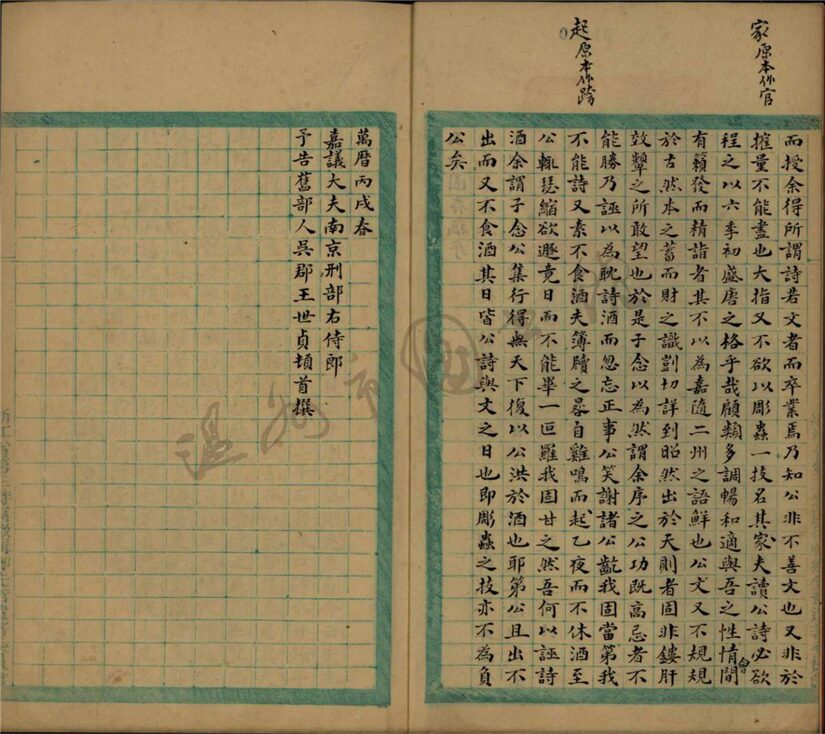 家原本作官
起原本作跨
而授余得所謂詩若文者而卒業焉乃知公非不善文也又非於
摧量不能盡也大指又不欲以彫蟲一技名其家夫讀公詩必欲
程之以六季初盛唐之格乎哉顧類多調暢和適與吾之性情間會
有籟發而精詣者其不以為嘉隨二州之語鮮也公文又不規規
於古然本之蓄而財之識剴切詳到昭然出於天則者固非鏤肝
效顰之所敢望也於是子念以為然謂余序之公功既高忌者不
能勝乃誣以為耽詩酒而忽忘正事公笑謝諸公齕我固當第我
不能詩又素不食酒夫簿牘之晷自雞鳴而起乙夜而不休酒至
公輒瑟縮欲遯竟日而不能畢一叵羅我固甘之然吾何以誣詩
酒余謂子念公集行得無天下復以公洪於酒也耶第公且出不
出而又不食酒其日皆公詩與文之日也即彫蟲之技亦不為負
公矣
萬曆丙戌春
嘉議大夫南京刑部右侍郎
予告舊部人吳郡王世貞頓首撰
溫州市圖